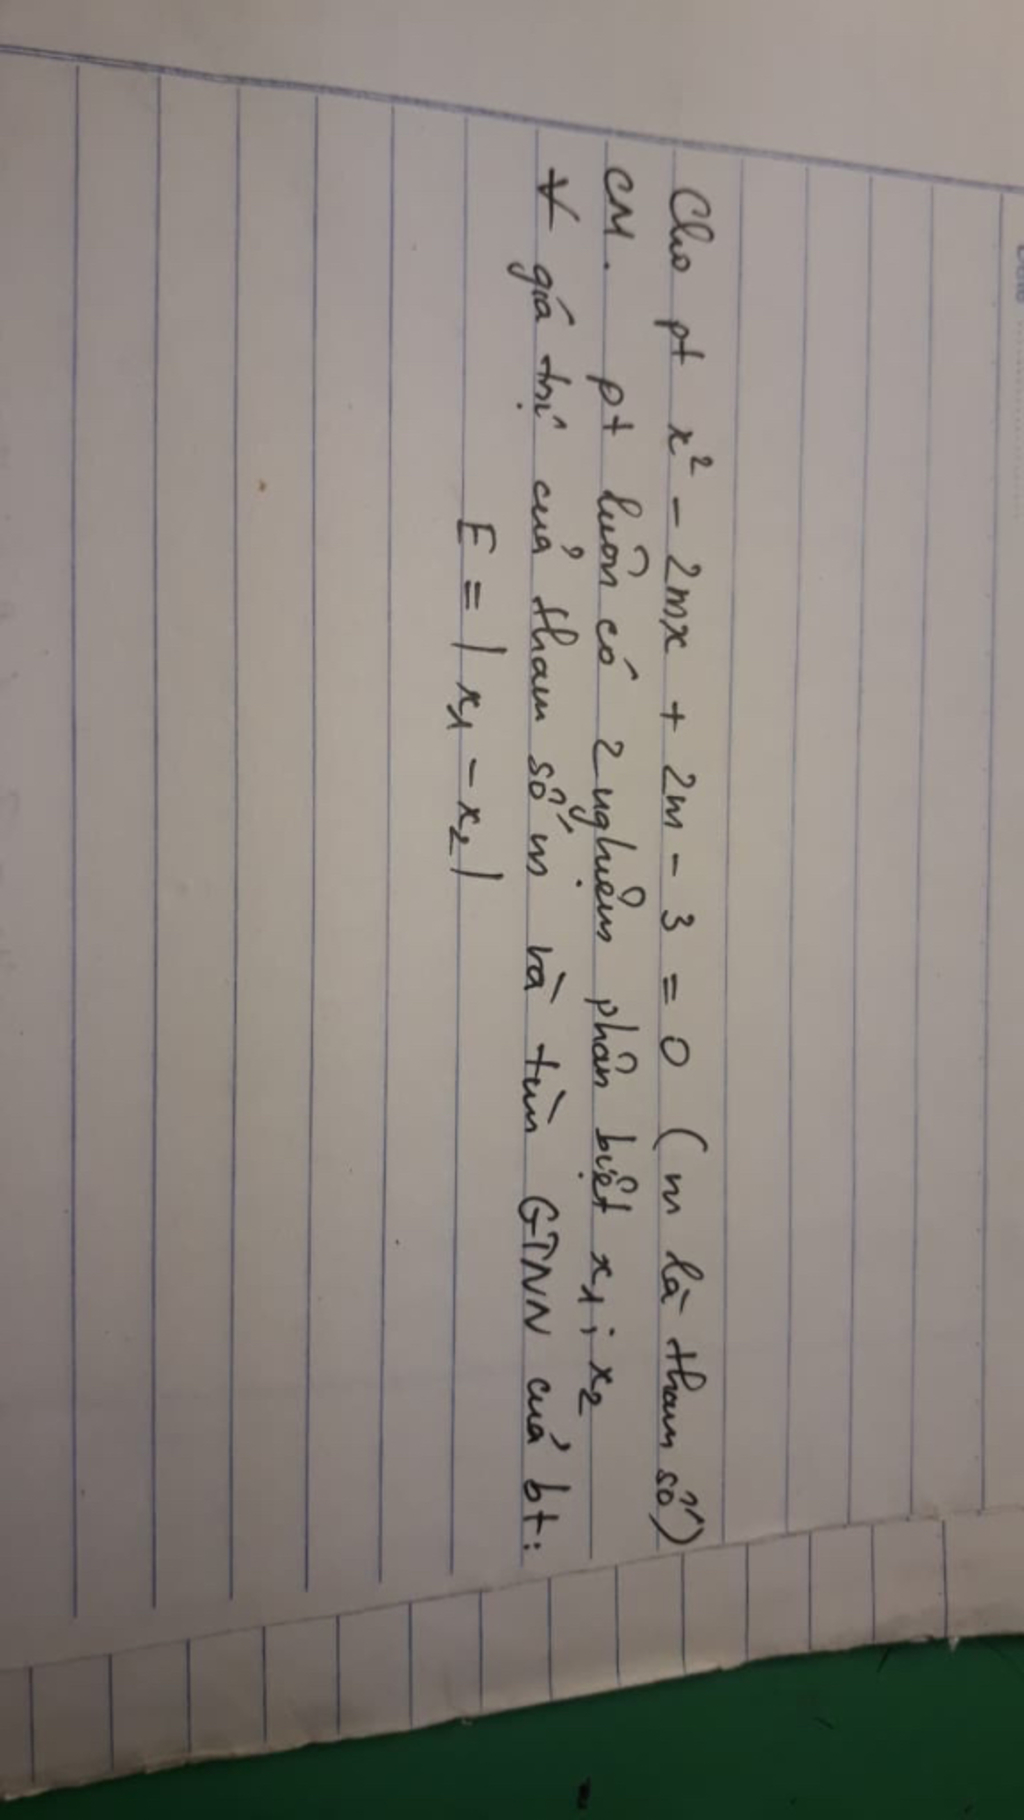 Cho pt x² - 2mx + 2m - 3 = 0 (m là tham số)
CM. pt luôn có 2 nghiệm phân biệt x₁; x₂
∀ giá trị của tham số m và tìm GTNN của bt:
E = | x₁ - x₂ |